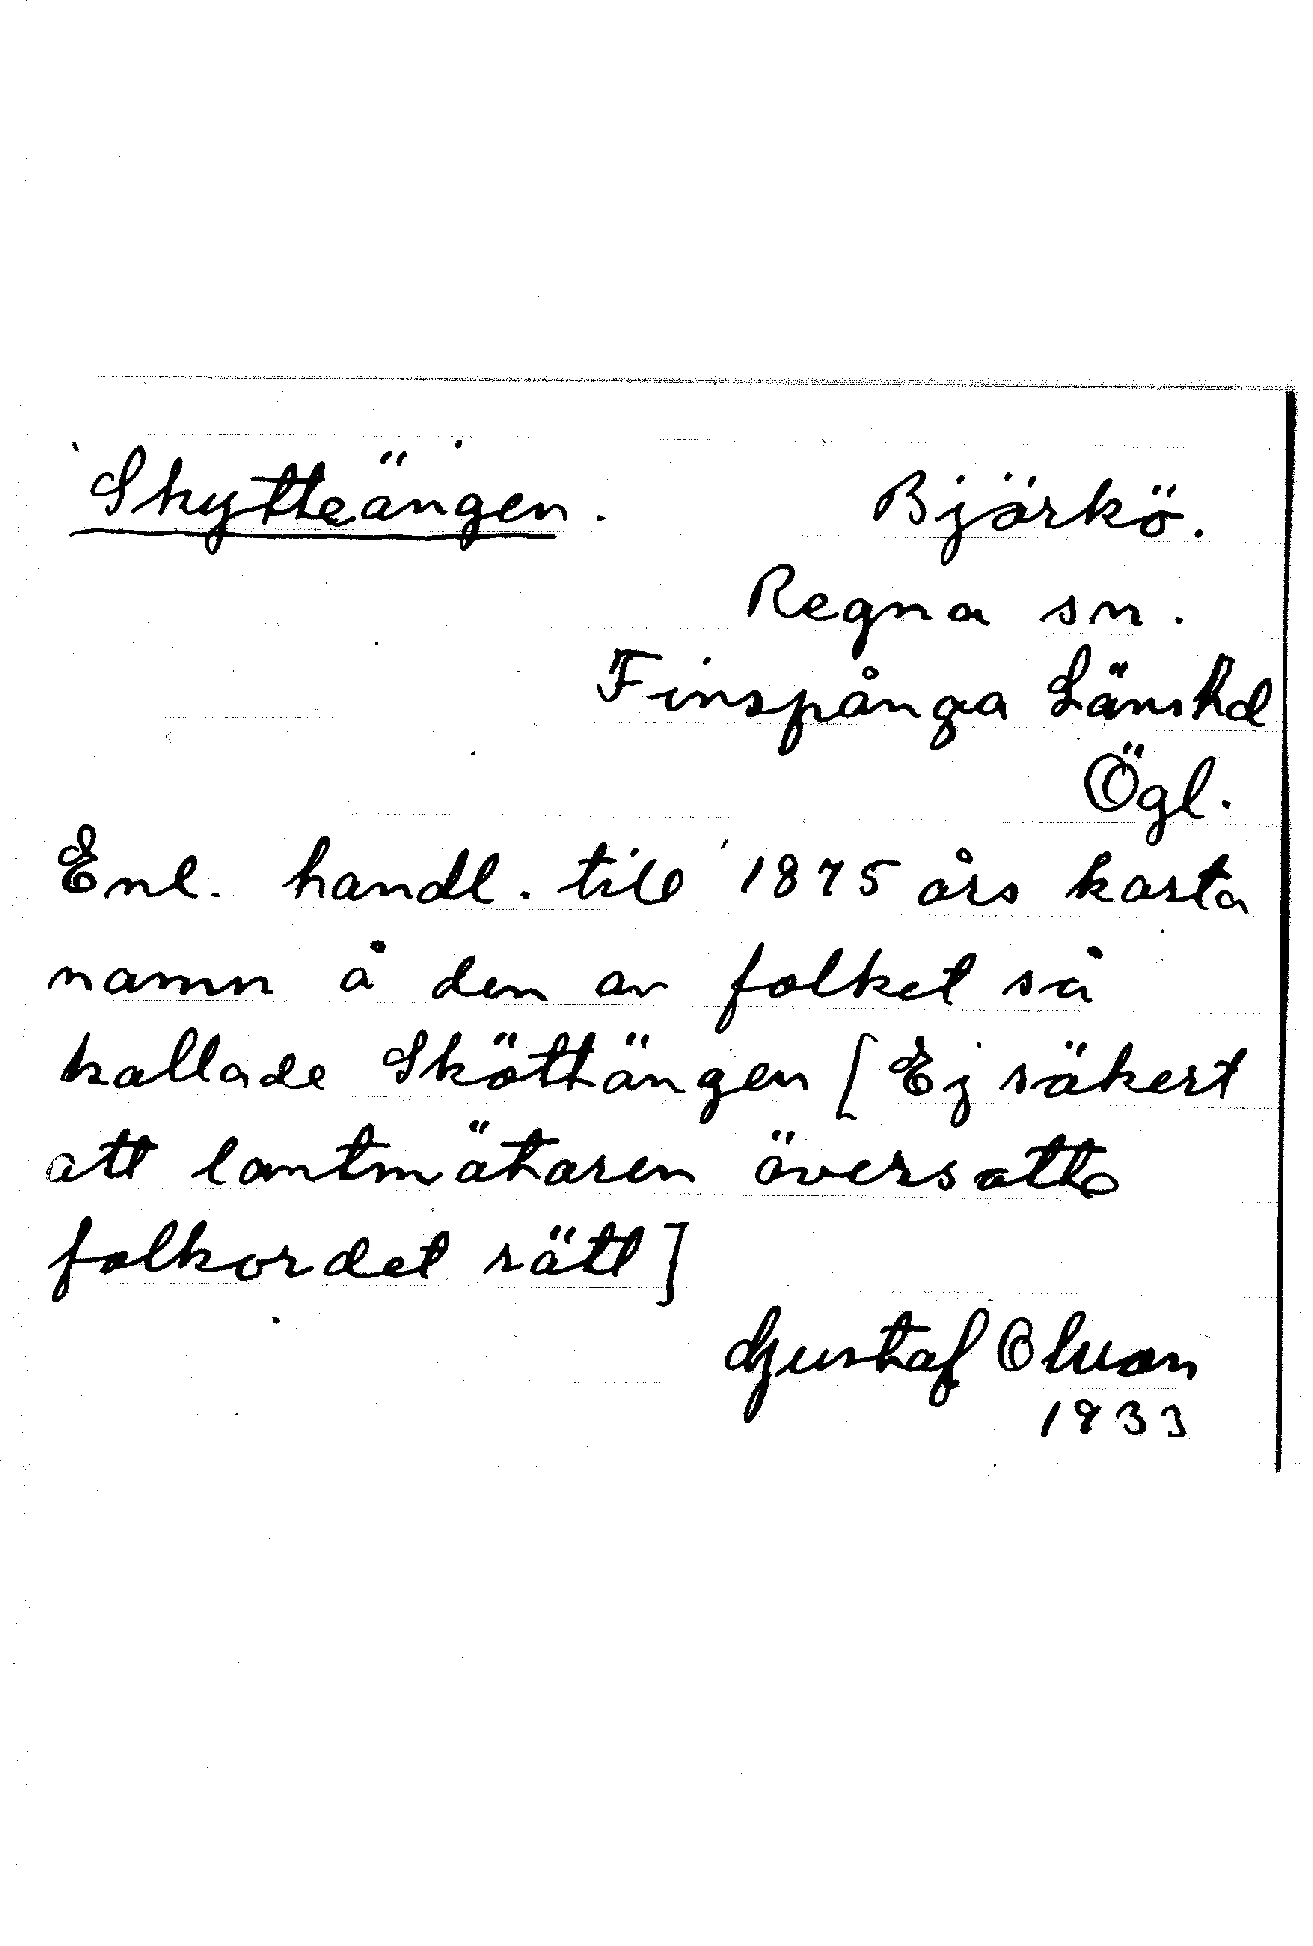 Skytteängen. Björkö.
Regna sn.
Finspånga Länshd
Ögl.
Enl. handl. till 1875 års karta
namn å den av folket så
kallade Sköttängen [Ej säkert
att lantmätaren översatte
folkordet rätt]
Gustaf Olson
1933